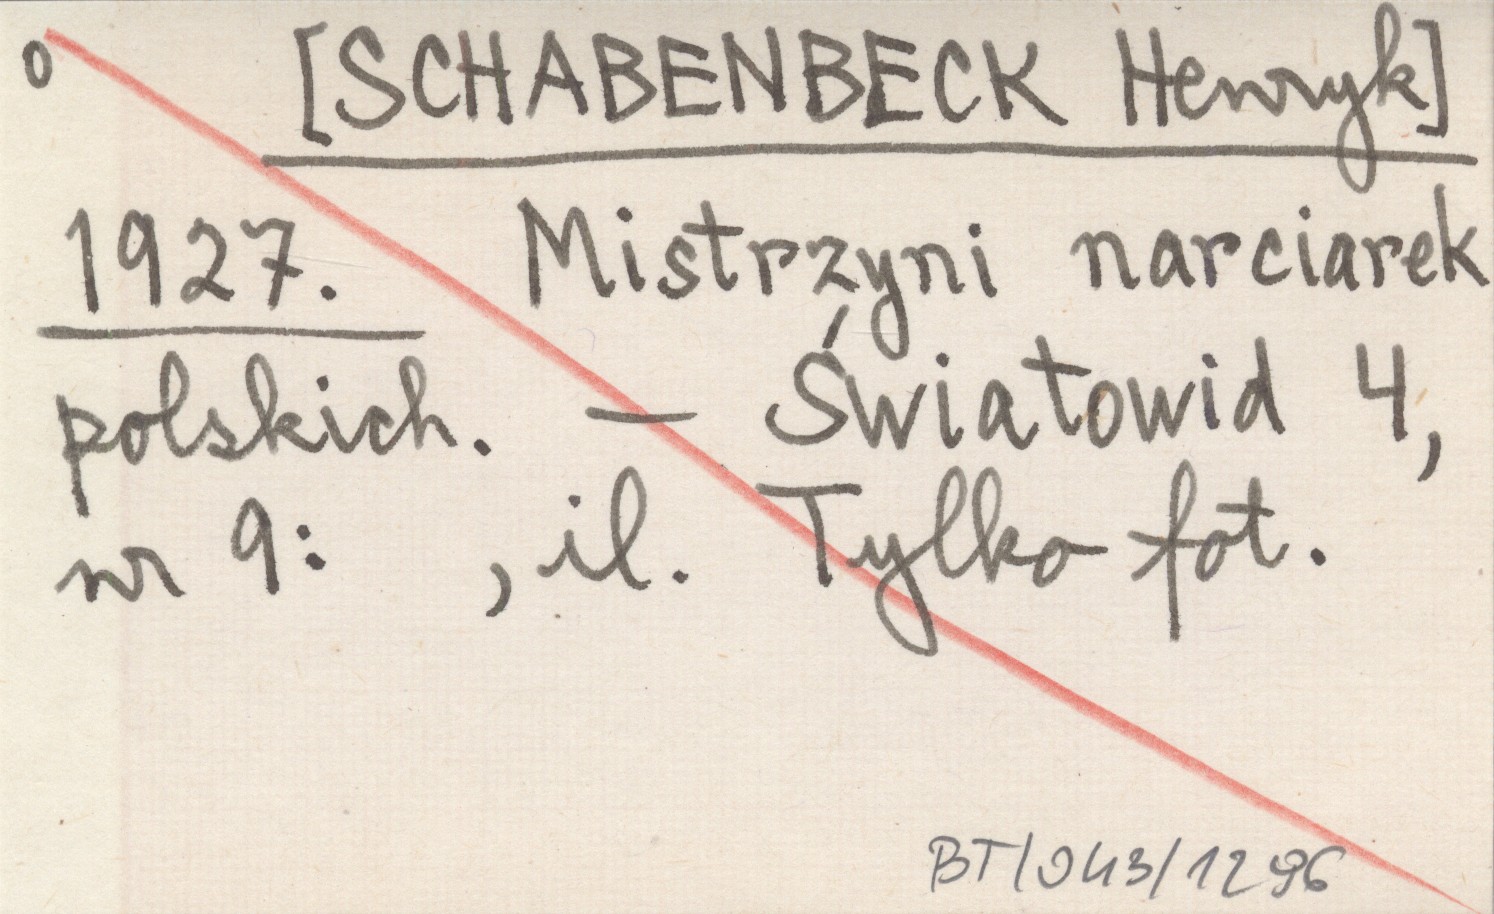 0 [SCHABENBECK Henryk]
1927. Mistrzyni narciarek
polskich. — Światowid 4,
nr 9: , il. Tylko fot.
BT/043/1296